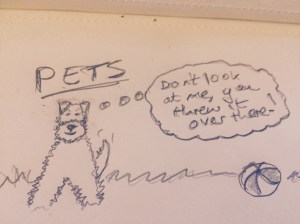 PETS
Don't look
at me, you
threw it
over there!